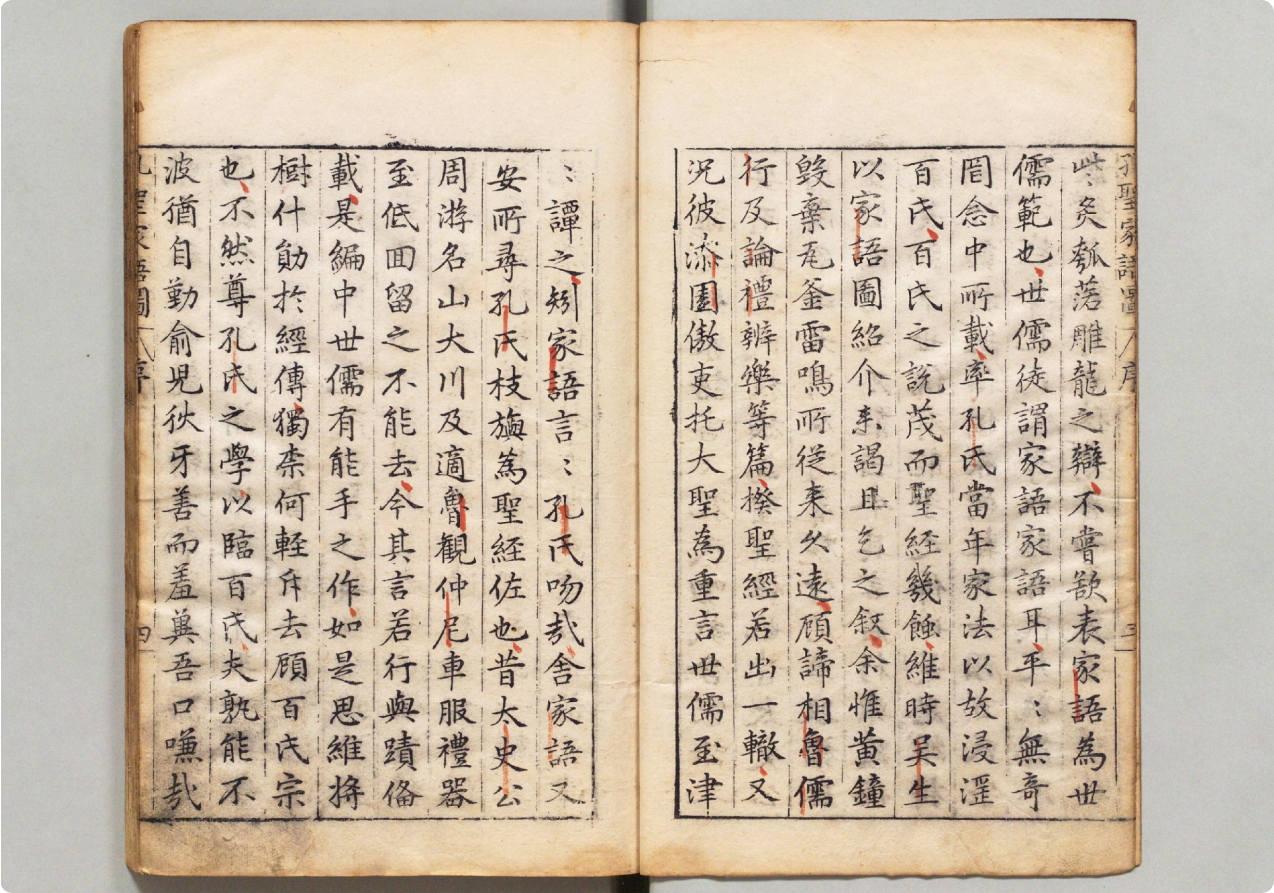 孔聖家語圖 序 三
此炙瓠落雕龍之辯不嘗欲表家語為世
儒範也世儒徒謂家語家語耳平〻無奇
罔念中所載率孔氏當年家法以故浸淫
百氏百氏之說茂而聖經幾蝕維時吴生
以家語圖紹介来謁且乞之叙余惟黄鐘
毀棄瓦釜雷鳴所從来久遠顧諦相魯儒
行及論禮辨樂等篇揆聖經若出一轍又
况彼漆園傲吏托大聖為重言世儒至津
〻譚之矧家語言〻孔氏吻㢤舍家語又
安所尋孔氏枝旃為聖經佐也昔太史公
周游名山大川及適魯觀仲尼車服禮器
至低囬留之不能去今其言若行與蹟俻
載是編中世儒有能手之作如是思維將
樹什勛扵經傳獨柰何輕斥去顧百氏宗
也不然尊孔氏之學以臨百氏夫孰能不
波猶自勤俞兒狄牙善而羞奥吾口嗛㢤
孔聖家語圖 序 四